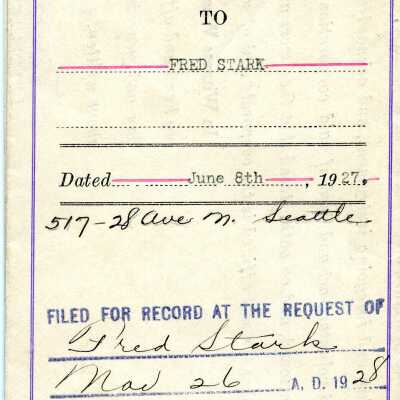 TO
FRED STARK
Dated June 8th, 1927.
517-28 Ave N. Seattle
FILED FOR RECORD AT THE REQUEST OF
Fred Stark
26 A. D. 1928